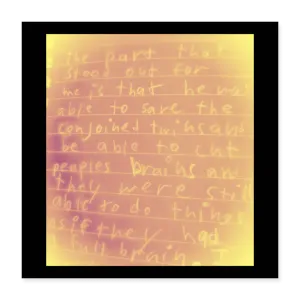 the part that
stood out for
me is that he wa
able to save the
conjoined twins and
be able to cut
peoples brains and
they were still
able to do things
as if they had
full brain. I